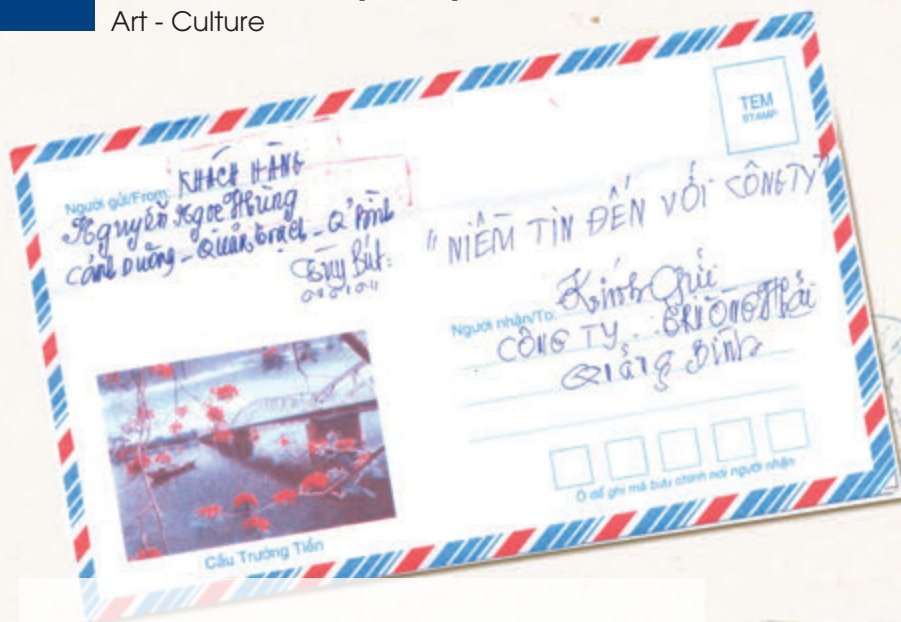 Art - Culture
TEM
STAMP
Người gửi/From: KHÁCH HÀNG
Nguyễn Ngọc Hùng
Cảnh Dương - Quảng Trạch - Q' Bình
Tùy Bút:
"NIỀM TIN ĐẾN VỚI CÔNG TY"
Kính Gửi
Người nhận/To: CÔNG TY TRƯỜNG HẢI
Quảng Bình
Ô để ghi mã bưu chính nơi người nhận
Cầu Trường Tiền